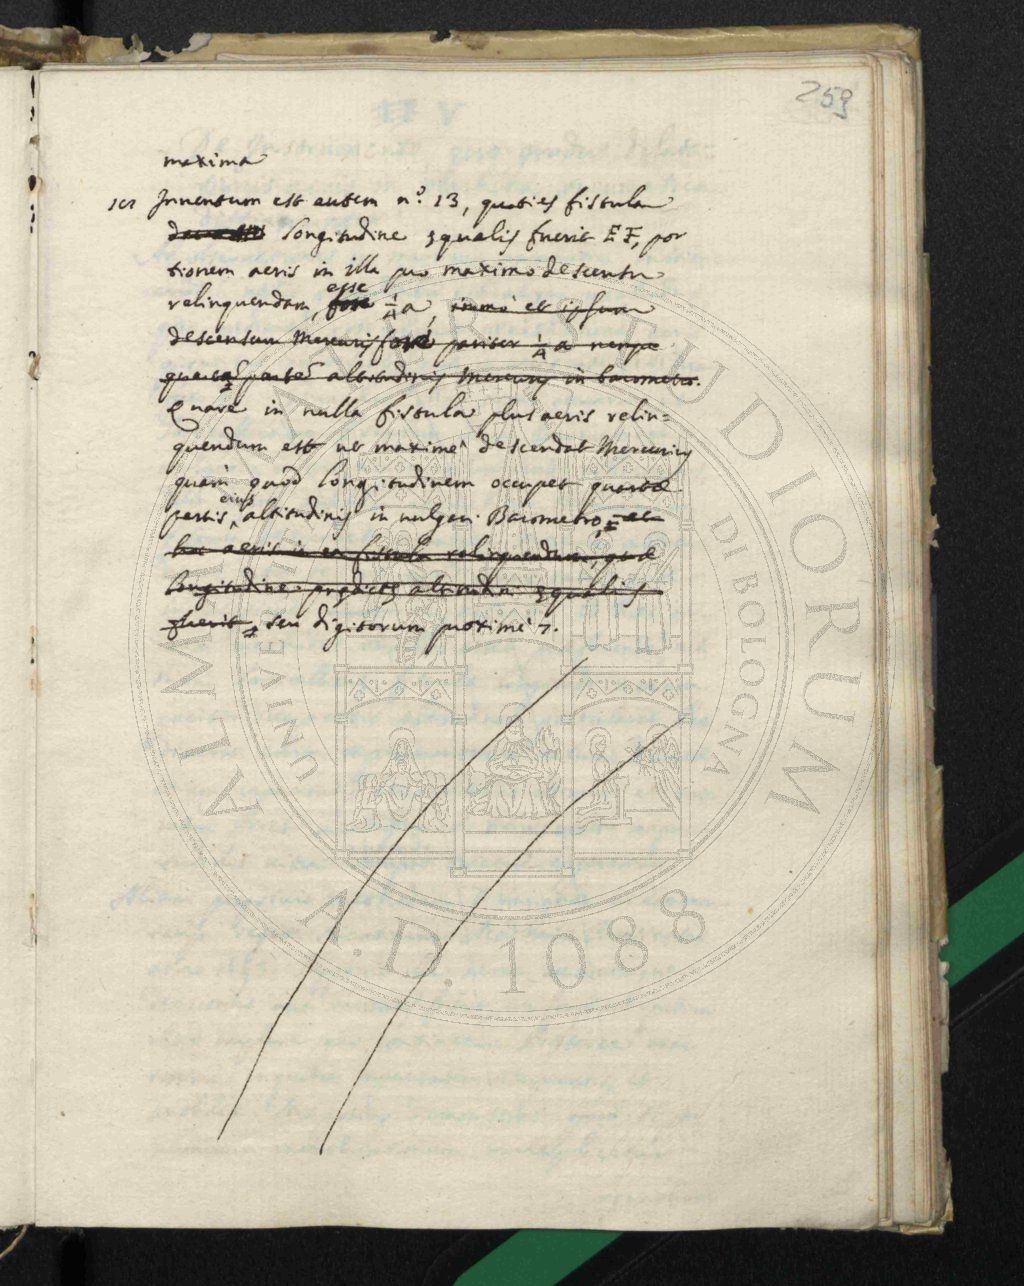 259
maxima
101 Inventum est autem n.º 13, quoties fistula
longitudine ęqualis fuerit EF, por
tionem aeris in illa pro maximo descensu
relinquendam, esse 1/4 a, immo et ipsum
descensum Mercurij fore pariter 1/4 a nempe
quartā partē altitudinis Mercurij in barometro.
Quare in nulla fistula plus aeris relin=
quendum est ut maximè descendat Mercurius
quàm quod longitudinem occupet quartæ
partis eius altitudinis in vulgari Barometro, et
aeris in ea fistula relinquendum, quæ
longitudine prędictę altitudini ęqualis
fuerit, seu digitorum proximè 7.
ALMA MATER STUDIORUM
UNIVERSITÀ DI BOLOGNA
A.D. 1088